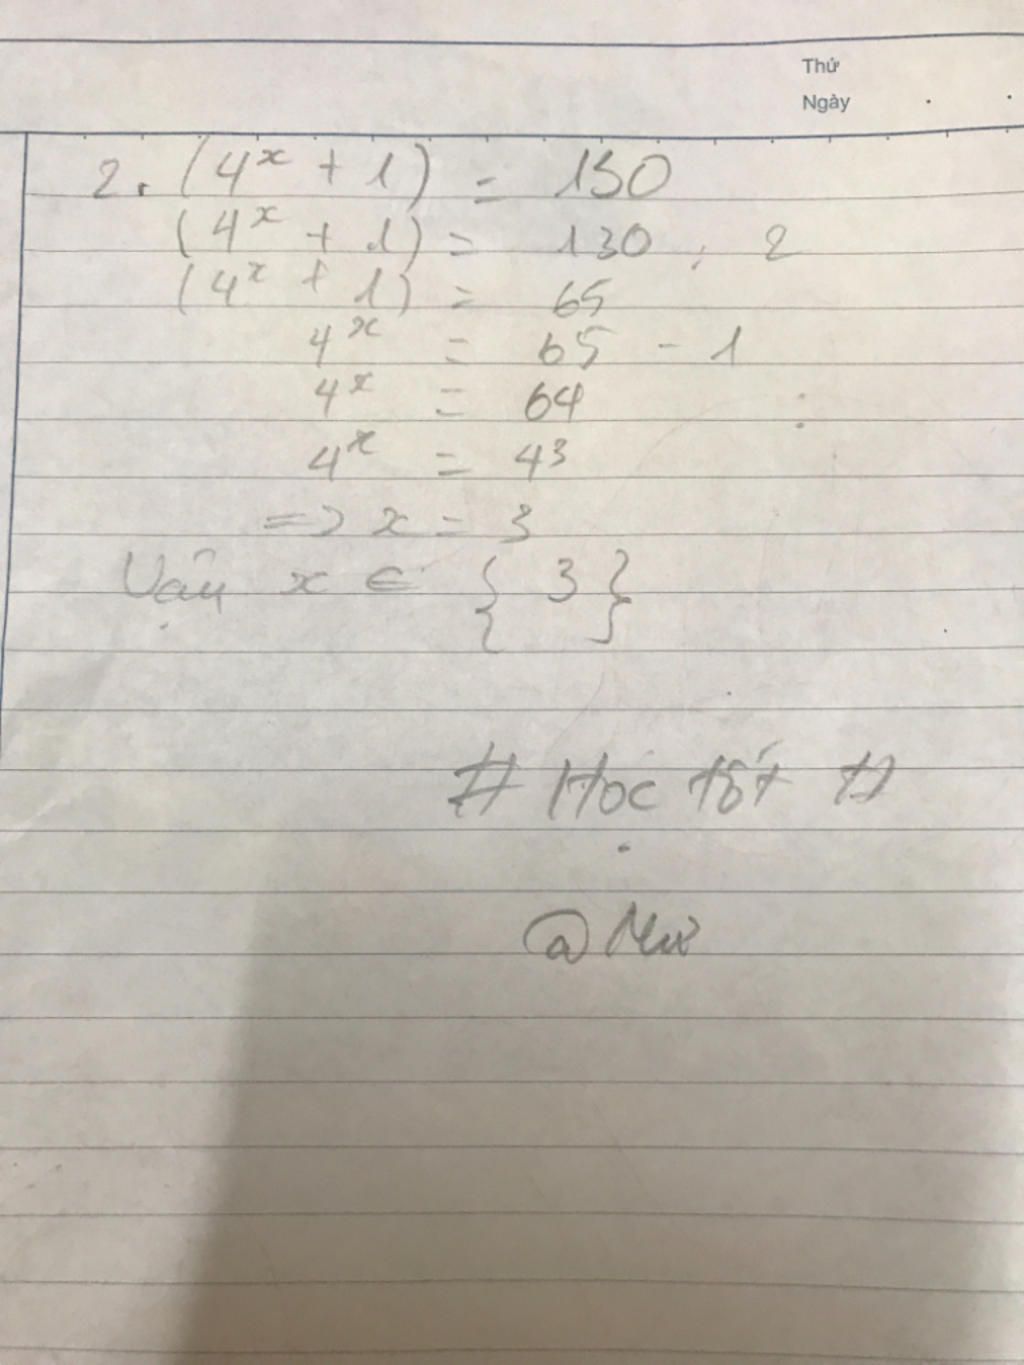 Thứ
Ngày
2. (4ˣ + 1) = 130
(4ˣ + 1) = 130 : 2
(4ˣ + 1) = 65
4ˣ = 65 - 1
4ˣ = 64
4ˣ = 4³
=> x = 3
Vậy x ∈ { 3 }
# Học tốt #